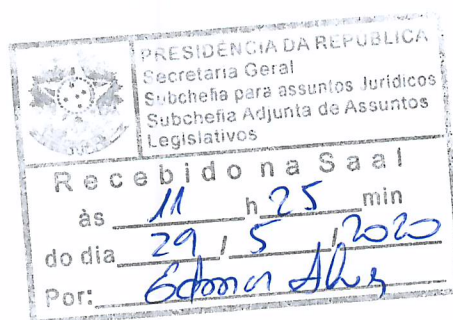 PRESIDÊNCIA DA REPÚBLICA
Secretaria Geral
Subchefia para assuntos Jurídicos
Subchefia Adjunta de Assuntos
Legislativos
Recebido na Saal
às 11 h 25 min
do dia 29 / 5 / 2020
Por: Edmar Alves